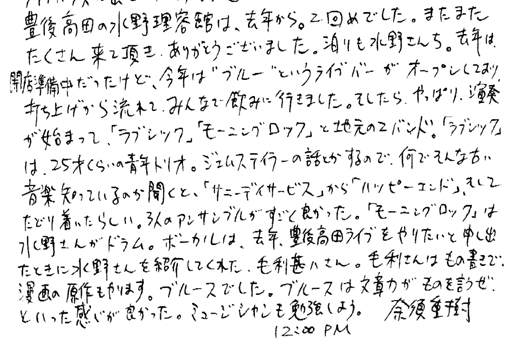 豊後高田の水野理容館は、去年から。2回めでした。またまた
たくさん来て頂き、ありがとうございました。泊りも水野さんち。去年は、
開店準備中だったけど、今年は"ブルー"というライブバーがオープンしており
打ち上げから流れて、みんなで飲みに行きました。そしたら、やっぱり、演奏
が始まって、「ラブシック」「モーニングロック」と地元の2バンド。「ラブシック」
は、25才くらいの青年トリオ。ジェームステイラーの話とかするので、何でそんな古い
音楽知っているのか聞くと、「サニーデイサービス」から「ハッピーエンド」、そして
たどり着いたらしい。3人のアンサンブルがすごく良かった。「モーニングロック」は
水野さんがドラム。ボーカルは、去年、豊後高田ライブをやりたいと申し出
たときに水野さんを紹介してくれた、毛利甚八さん。毛利さんはもの書きで、
漫画の原作もやります。ブルースでした。ブルースは文章力がものを言うぜ、
といった感じが良かった。ミュージシャンも勉強しよう。 奈須重樹
12:00 PM